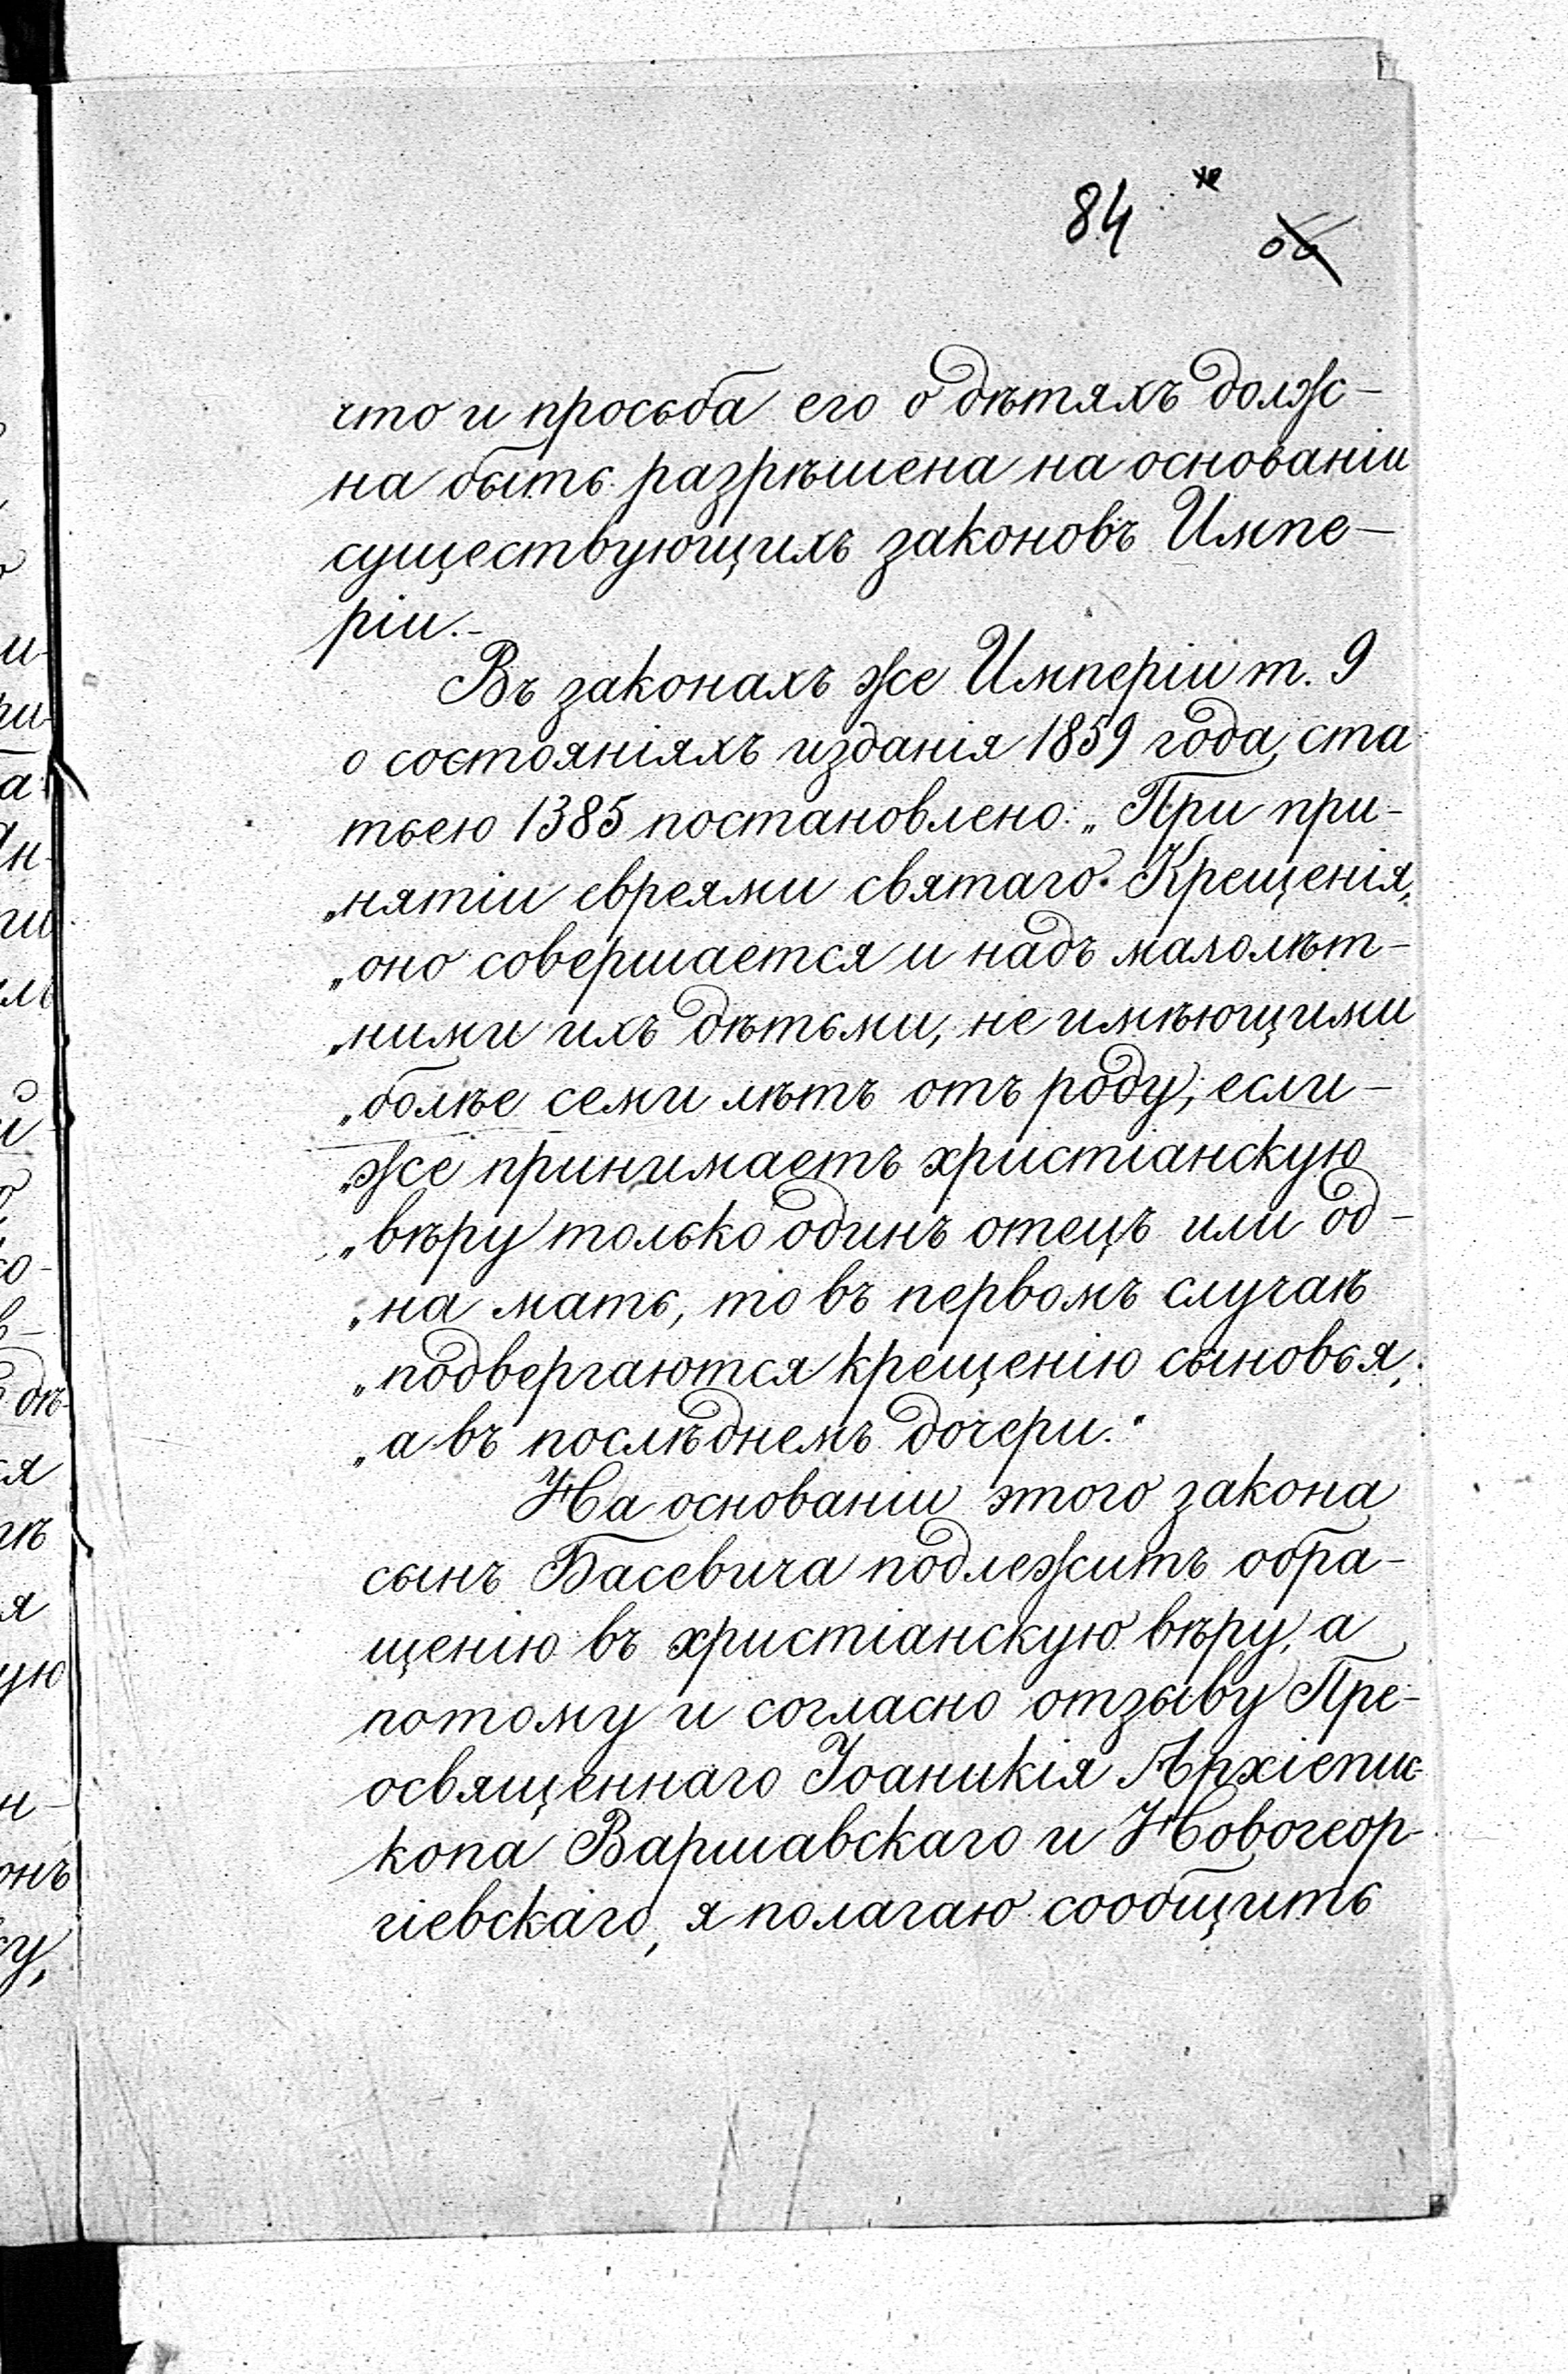 84
что и просьба его о дѣтяхъ долж-
на быть разрѣшена на основаніи
существующихъ законовъ Импе-
ріи.-
Въ законахъ же Имперіи т. 9
о состояніяхъ изданія 1859 года, ста
тьею 1385 постановлено: „При при-
„нятіи евреями святаго Крещенія,
„оно совершается и надъ малолѣт-
„ними ихъ дѣтьми, не имѣющими
„болѣе семи лѣтъ отъ роду; если-
„же принимаетъ христіанскую
„вѣру только одинъ отецъ или од-
„на мать, то въ первомъ случаѣ
„подвергаются крещенію сыновья,
„а въ послѣднемъ дочери."
На основаніи этого закона
сынъ Басевича подлежитъ обра-
щенію въ христіанскую вѣру, а
потому и согласно отзыву Пре-
освященнаго Іоаникія Архіепис-
копа Варшавскаго и Новогеор-
гіевскаго, я полагаю сообщить